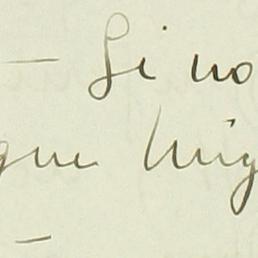 — Si no
que mig
—